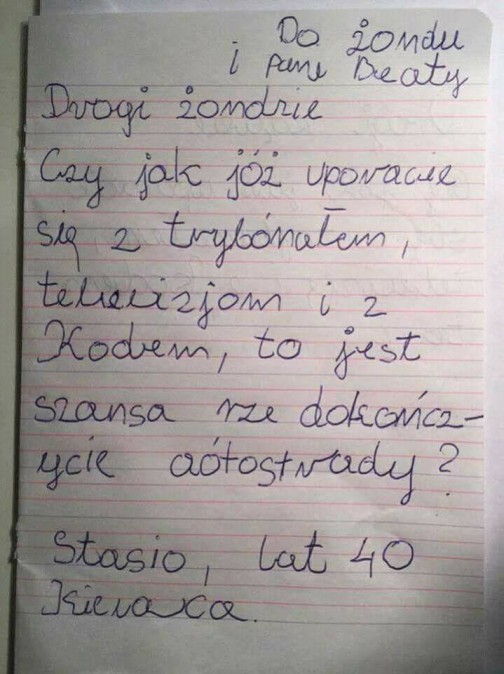 Do żondu
i pani Beaty
Drogi żondzie
Czy jak jóż uporacie
się z trybónałem,
telewizjom i z
Kodem, to jest
szansa rze dokończ-
ycie aótostrady?
Stasio, lat 40
kierofca.